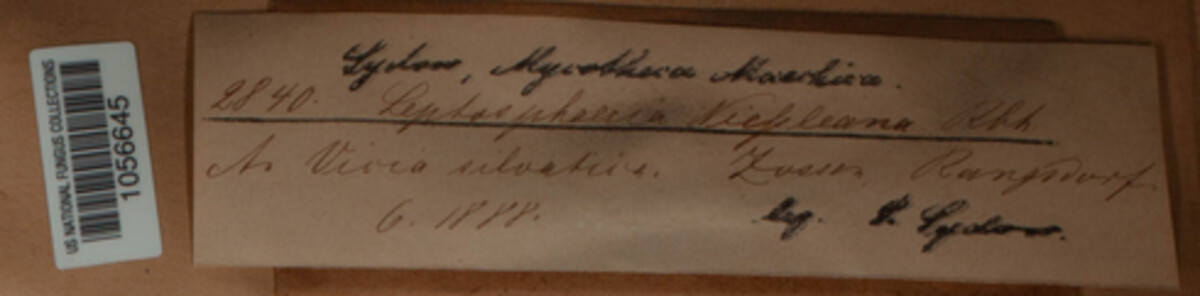 US NATIONAL FUNGUS COLLECTIONS
1056645
Sydow, Mycotheca Marchica.
2840. Leptosphaeria Niessleana Rbh
A. Vicia silvatica. Zossen, Rangsdorf
6. 1888.
leg. P. Sydow.